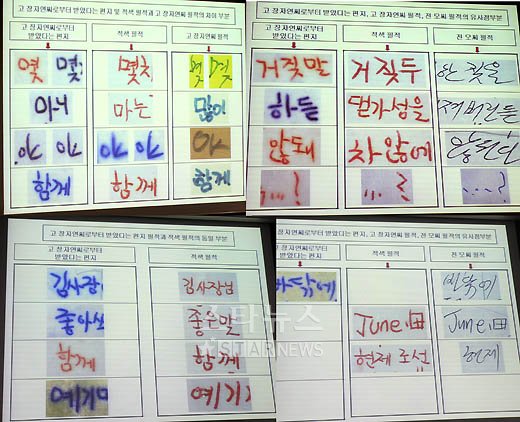 고 장자연씨로부터 받았다는 편지 및 적색 필적과 고 장자연씨 필적의 차이 부분
고 장자연씨로부터 받았다는 편지 적색 필적 고 장자연씨 필적
몇 몇 몇치 몇 몇
마니 마는 많이
야 야 야 야 야
함께 함께 함께
고 장자연씨로부터 받았다는 편지, 고 장자연씨 필적, 전 모씨 필적의 유사점부분
고 장자연씨로부터 받았다는 편지 적색 필적 전 모씨 필적
거짓말 거짓두
하든
않돼 차 않에
....! ....? ....?
고 장자연씨로부터 받았다는 편지 필적과 적색 필적의 동일 부분
고 장자연씨로부터 받았다는 편지 적색 필적
김사장 김사장님
좋아 좋은말
함께 함께
얘기 얘기
스타뉴스
STARNEWS
고 장자연씨로부터 받았다는 편지, 고 장자연씨 필적, 전 모씨 필적의 유사점부분
고 장자연씨로부터 받았다는 편지 적색 필적 전 모씨 필적
바닦에
June June
현제 조선 현제